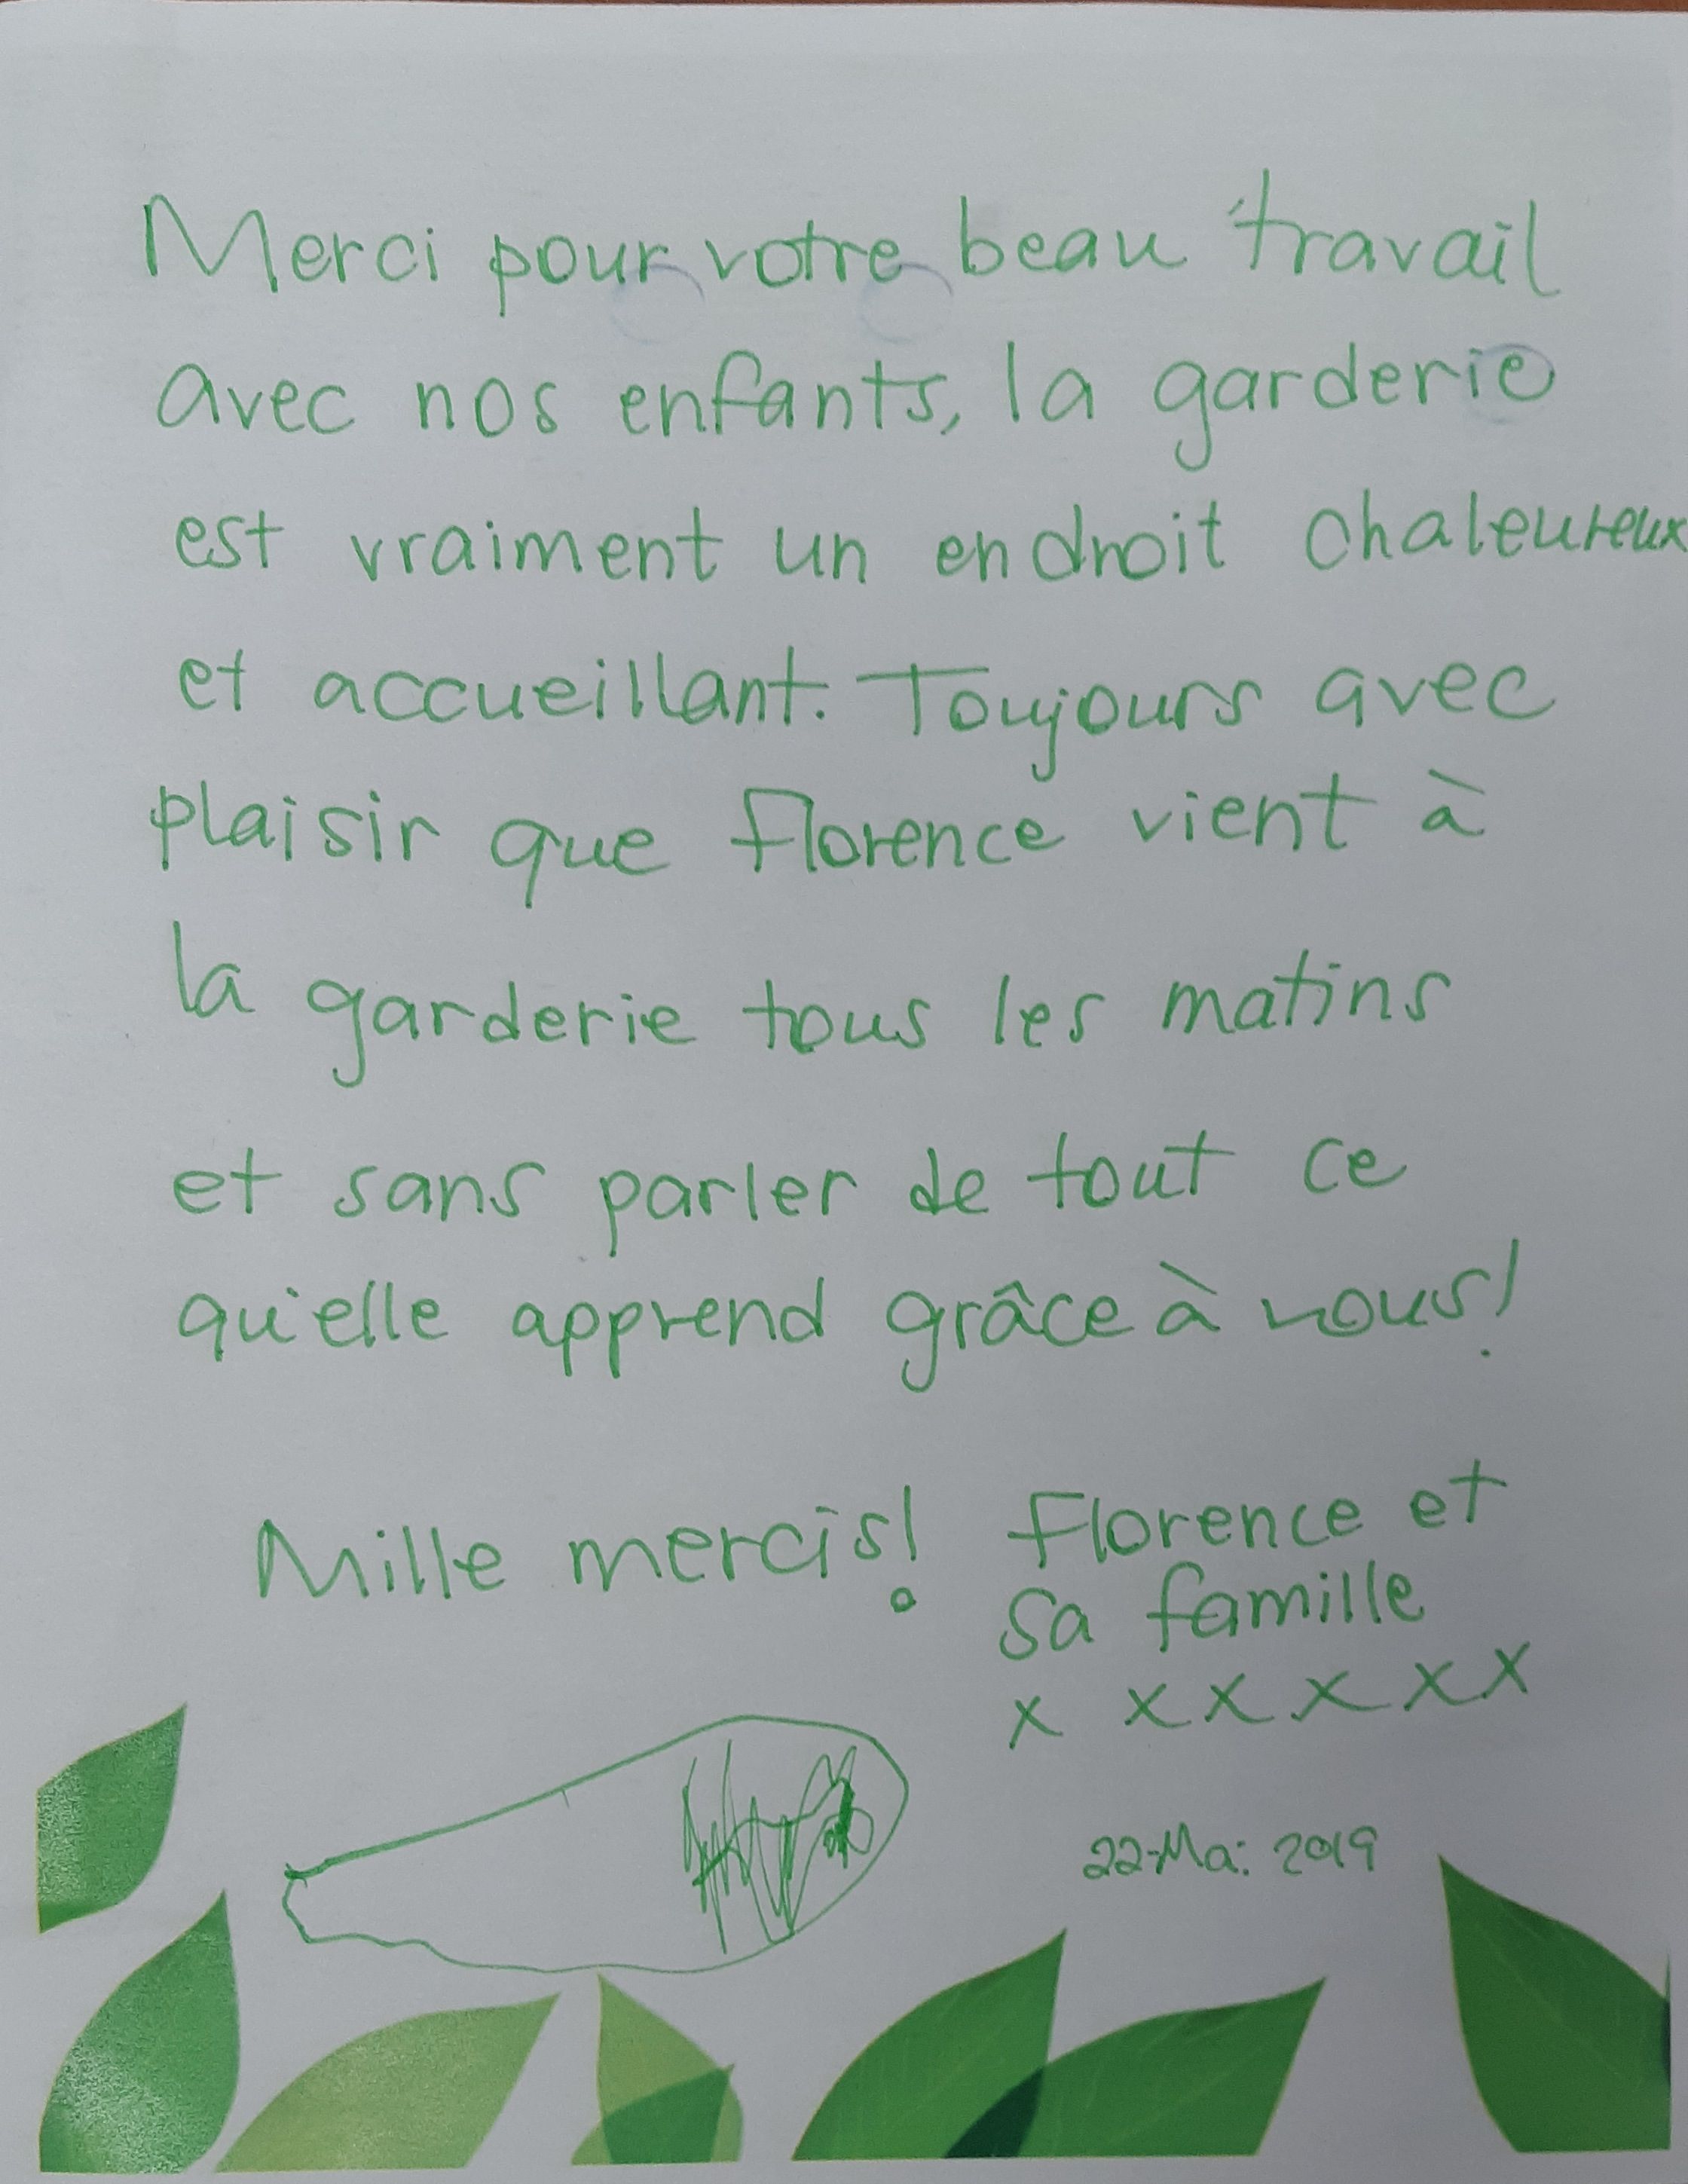 Merci pour votre beau travail
avec nos enfants, la garderie
est vraiment un endroit chaleureux
et accueillant. Toujours avec
plaisir que Florence vient à
la garderie tous les matins
et sans parler de tout ce
qu'elle apprend grâce à vous!
Mille mercis! Florence et
sa famille
x x x x x x
22-Mai 2019